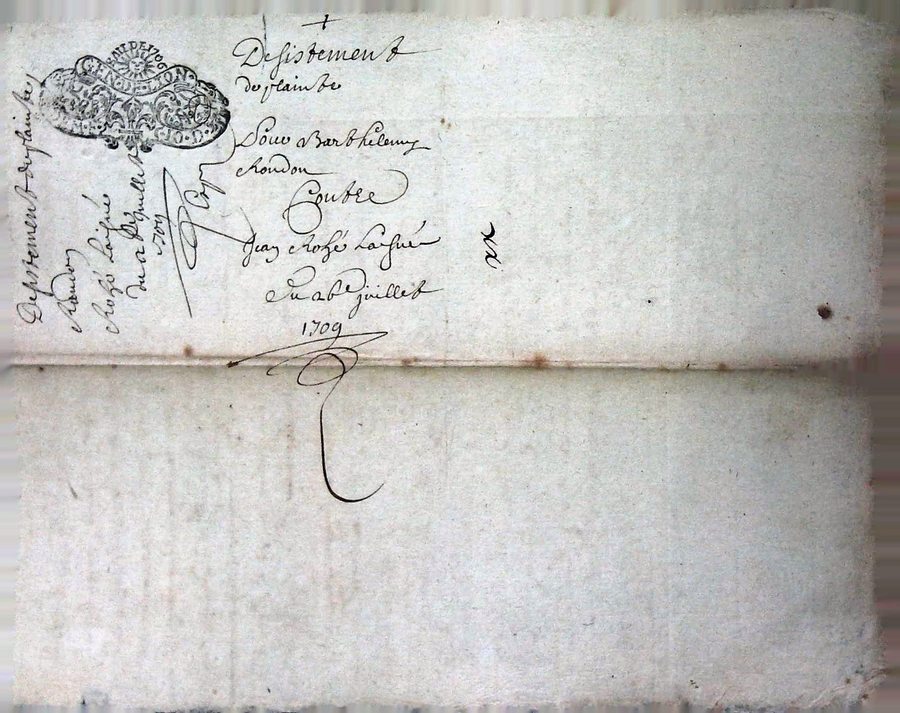 Desistement
de plainte
Pour Barthelemy
Rondon
Contre
Jean Rozé Laisné
Du 26e juillet
1709
Desistement de plainte
Rondon
Rozé Laisné
du juillet
1709
GEN. DE LYON